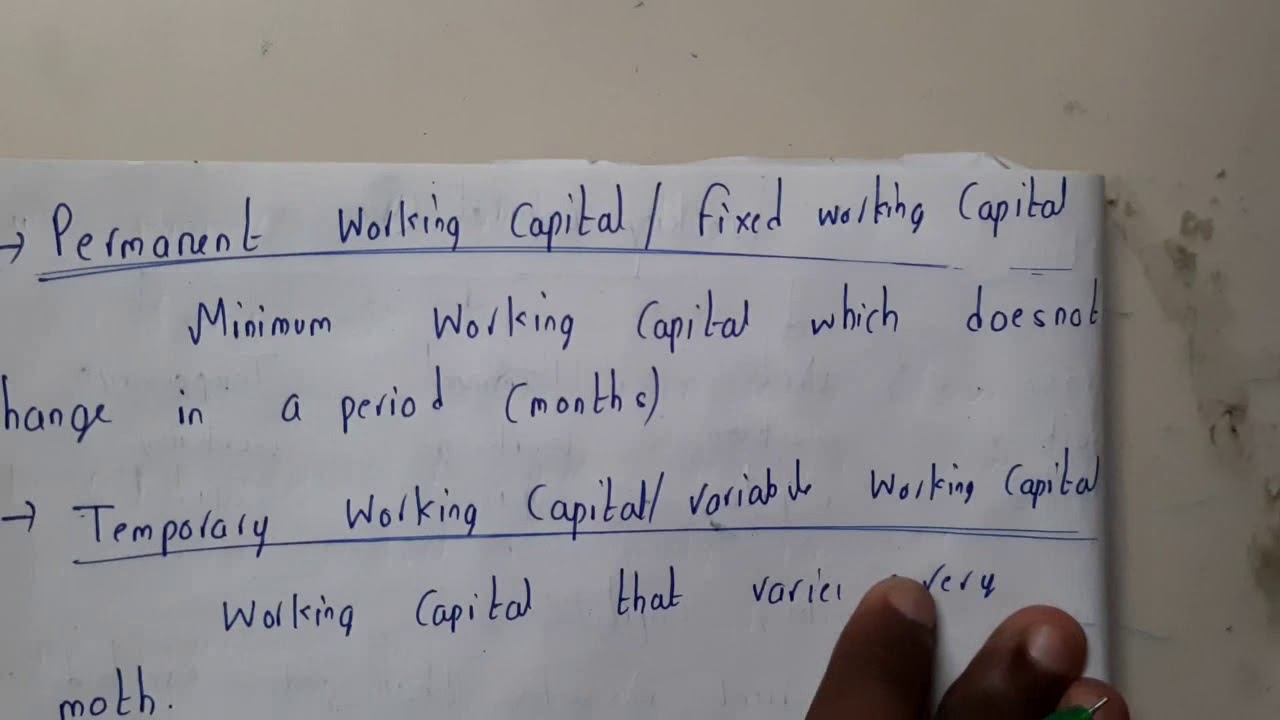 → Permanent Working Capital / Fixed working Capital
Minimum Working Capital which doesnot
hange in a period (months)
→ Temporary Working Capital / variable Working Capital
Working Capital that varies very
moth.